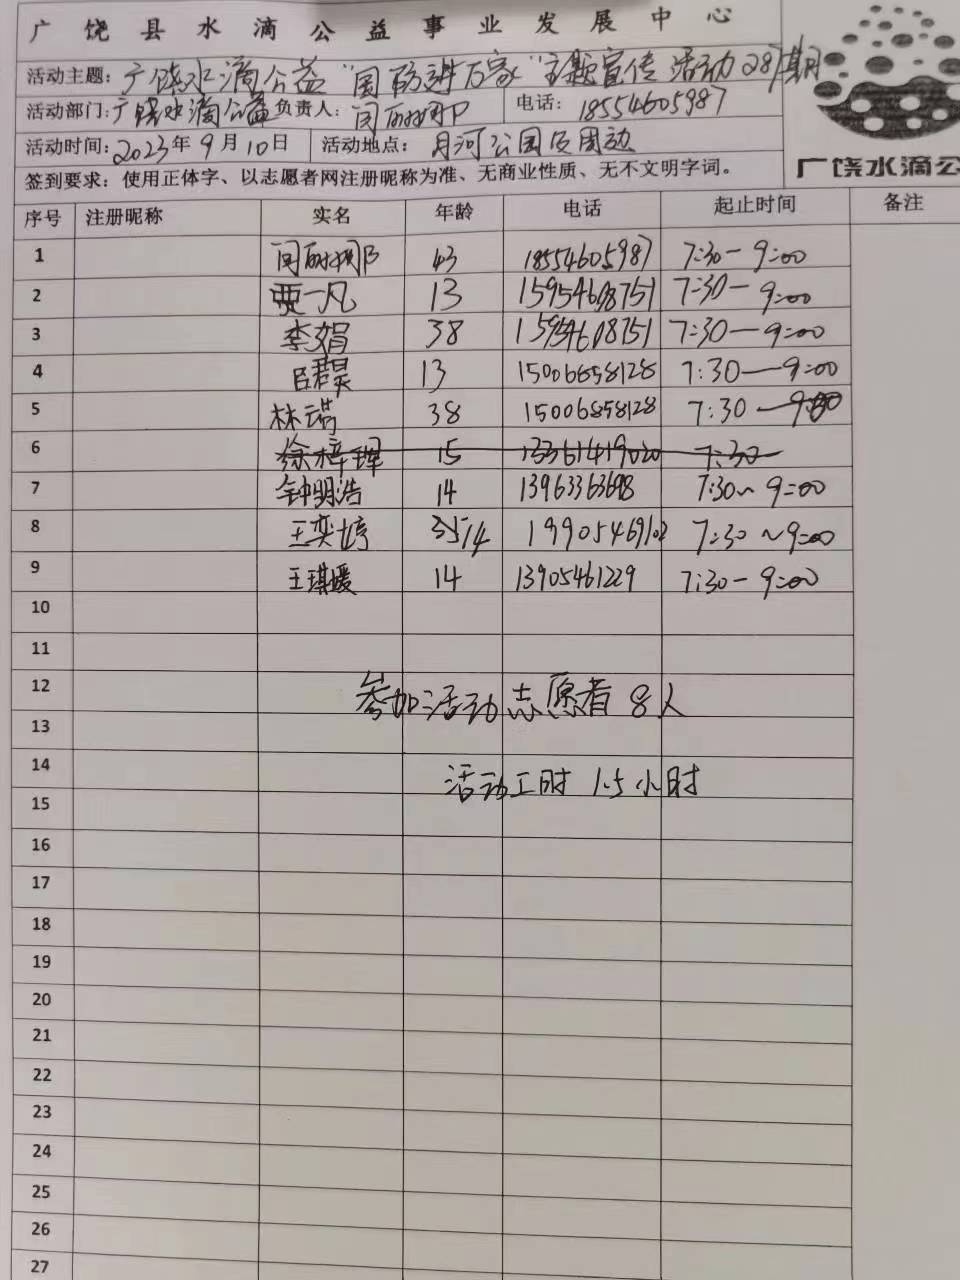 广饶县水滴公益事业发展中心
活动主题：广饶水滴公益“国防进万家”主题宣传活动287期
活动部门：广饶水滴公益 负责人： 电话：18554605987
活动时间：2023年9月10日 活动地点：月河公园及周边
签到要求：使用正体字、以志愿者网注册昵称为准、无商业性质、无不文明字词。
广饶水滴公
序号 注册昵称 实名 年龄 电话 起止时间 备注
1 43 18554605987 7:30－9:00
2 贾一凡 13 15954608751 7:30－9:00
3 李娟 38 15954608751 7:30－9:00
4 吕君昊 13 15006858128 7:30－9:00
5 林诺 38 15006858128 7:30－9:00
6 徐梓珲 15 13361419020 7:30－
7 钟明浩 14 13963363698 7:30~9:00
8 王奕婷 14 19905469102 7:30~9:00
9 王琪媛 14 13905461229 7:30－9:00
10
11
12 参加活动志愿者8人
13
14 活动工时 1.5小时
15
16
17
18
19
20
21
22
23
24
25
26
27